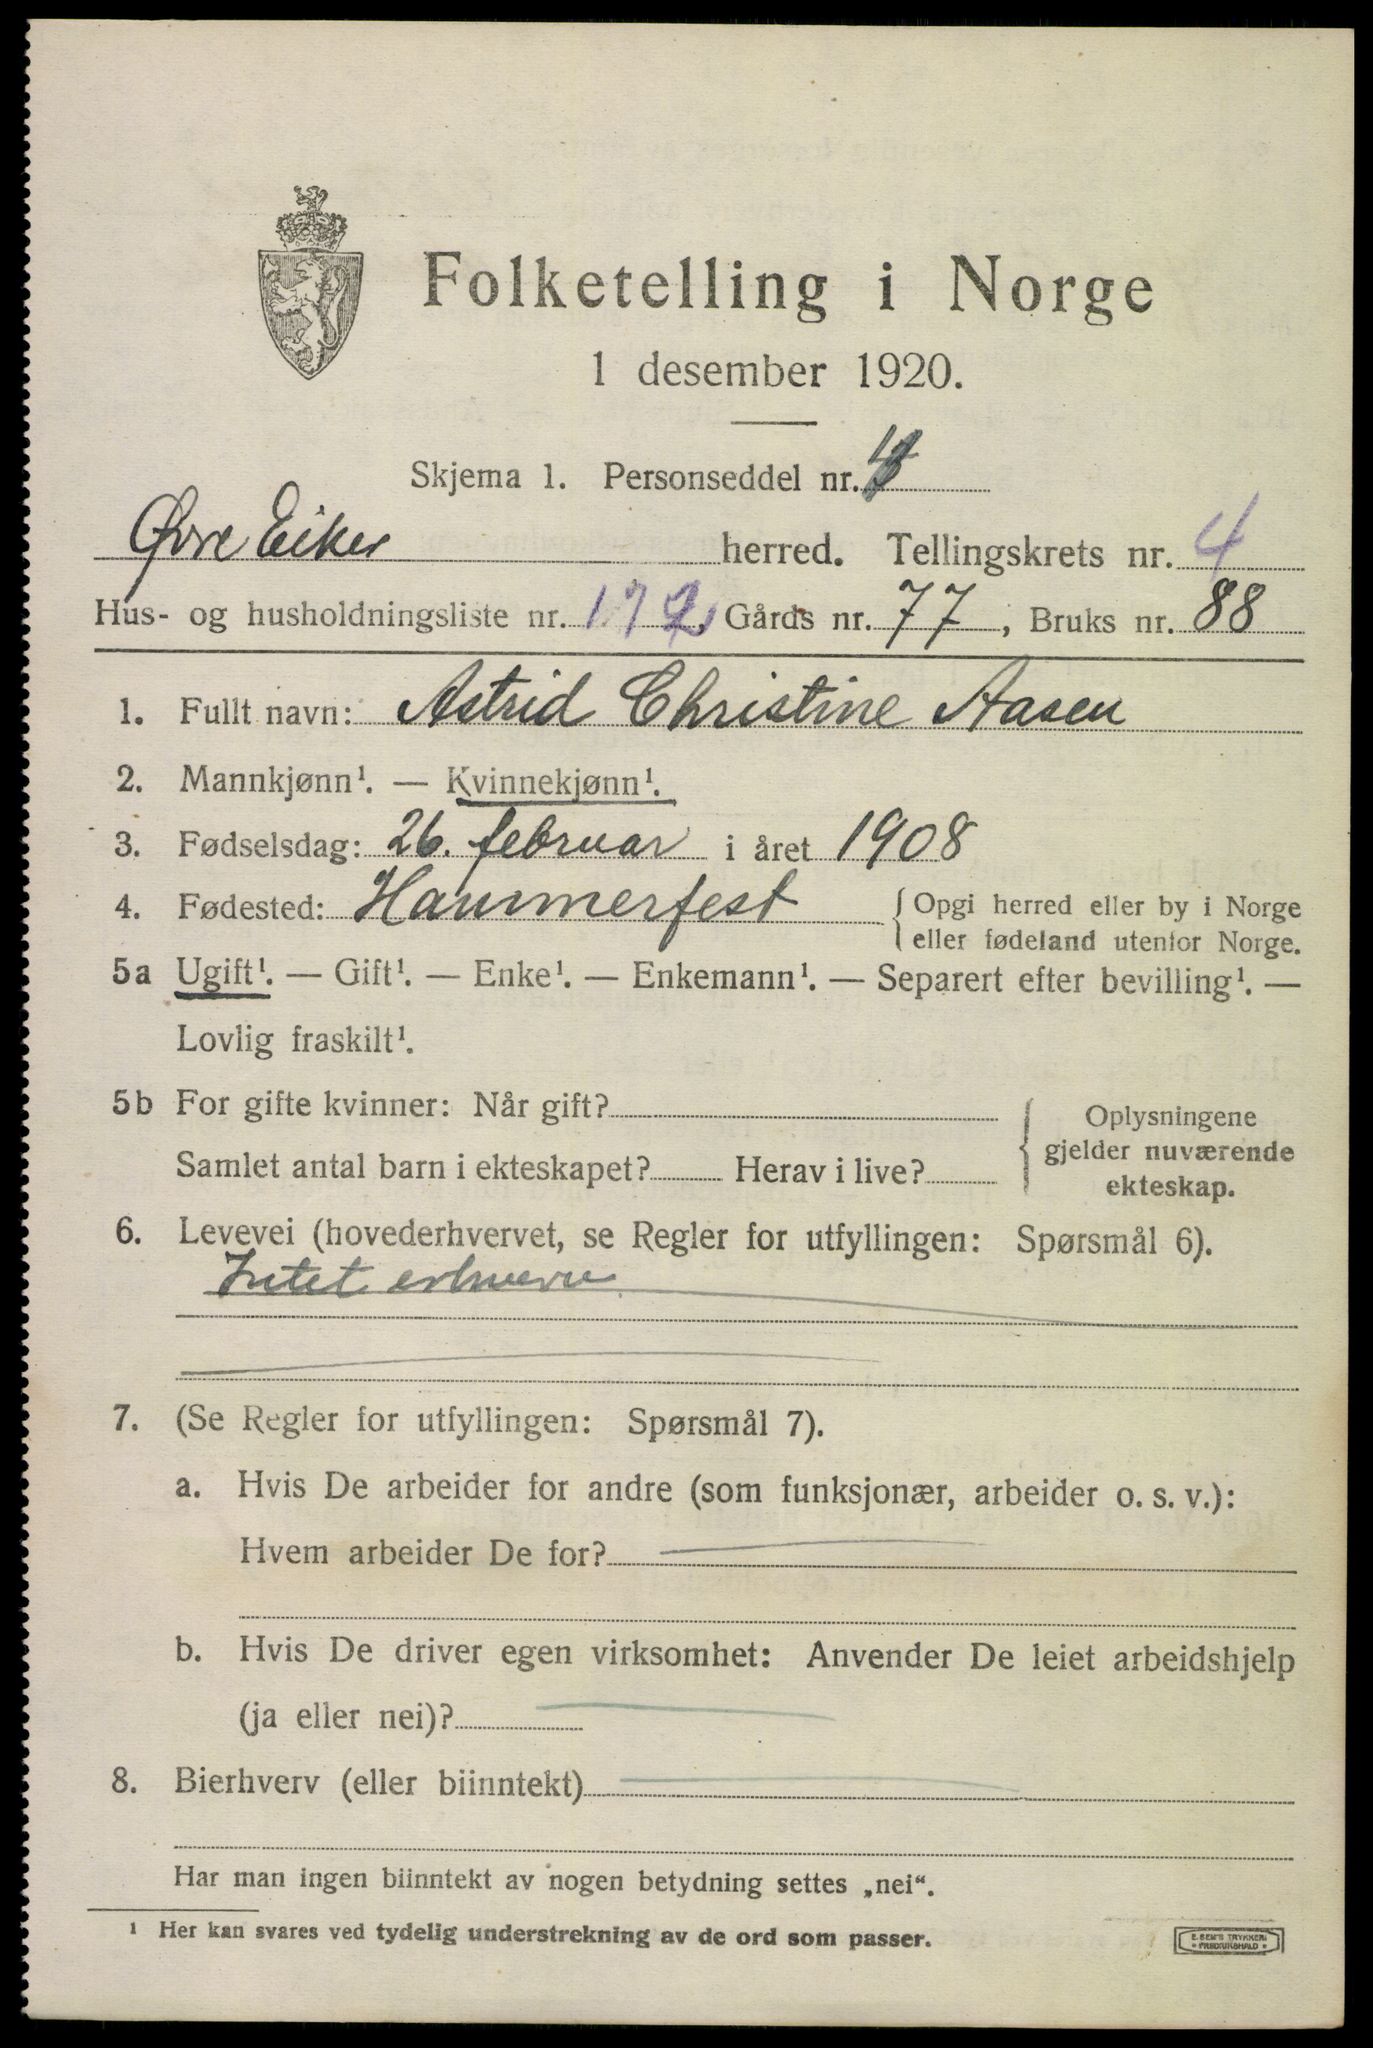 Folketelling i Norge
1 desember 1920.
Skjema 1. Personseddel nr. 4
Øvre Eiker herred. Tellingskrets nr. 4
Hus- og husholdningsliste nr. 172, Gårds nr. 77, Bruks nr. 88
1. Fullt navn: Astrid Christine Aasen
2. Mannkjønn¹. — Kvinnekjønn¹.
3. Fødselsdag: 26. februar i året 1908
4. Fødested: Hammerfest { Opgi herred eller by i Norge
eller fødeland utenfor Norge.
5a Ugift¹. — Gift¹. — Enke¹. — Enkemann¹. — Separert efter bevilling¹. —
Lovlig fraskilt¹.
5b For gifte kvinner: Når gift?
Samlet antal barn i ekteskapet? Herav i live?
Oplysningene
gjelder nuværende
ekteskap.
6. Levevei (hovederhvervet, se Regler for utfyllingen: Spørsmål 6).
Intet erhverv
7. (Se Regler for utfyllingen: Spørsmål 7).
a. Hvis De arbeider for andre (som funksjonær, arbeider o. s. v.):
Hvem arbeider De for?
b. Hvis De driver egen virksomhet: Anvender De leiet arbeidshjelp
(ja eller nei)?
8. Bierhverv (eller biinntekt)
Har man ingen biinntekt av nogen betydning settes „nei“.
¹ Her kan svares ved tydelig understrekning av de ord som passer.
E. SEM'S TRYKKERI
FREDRIKSHALD